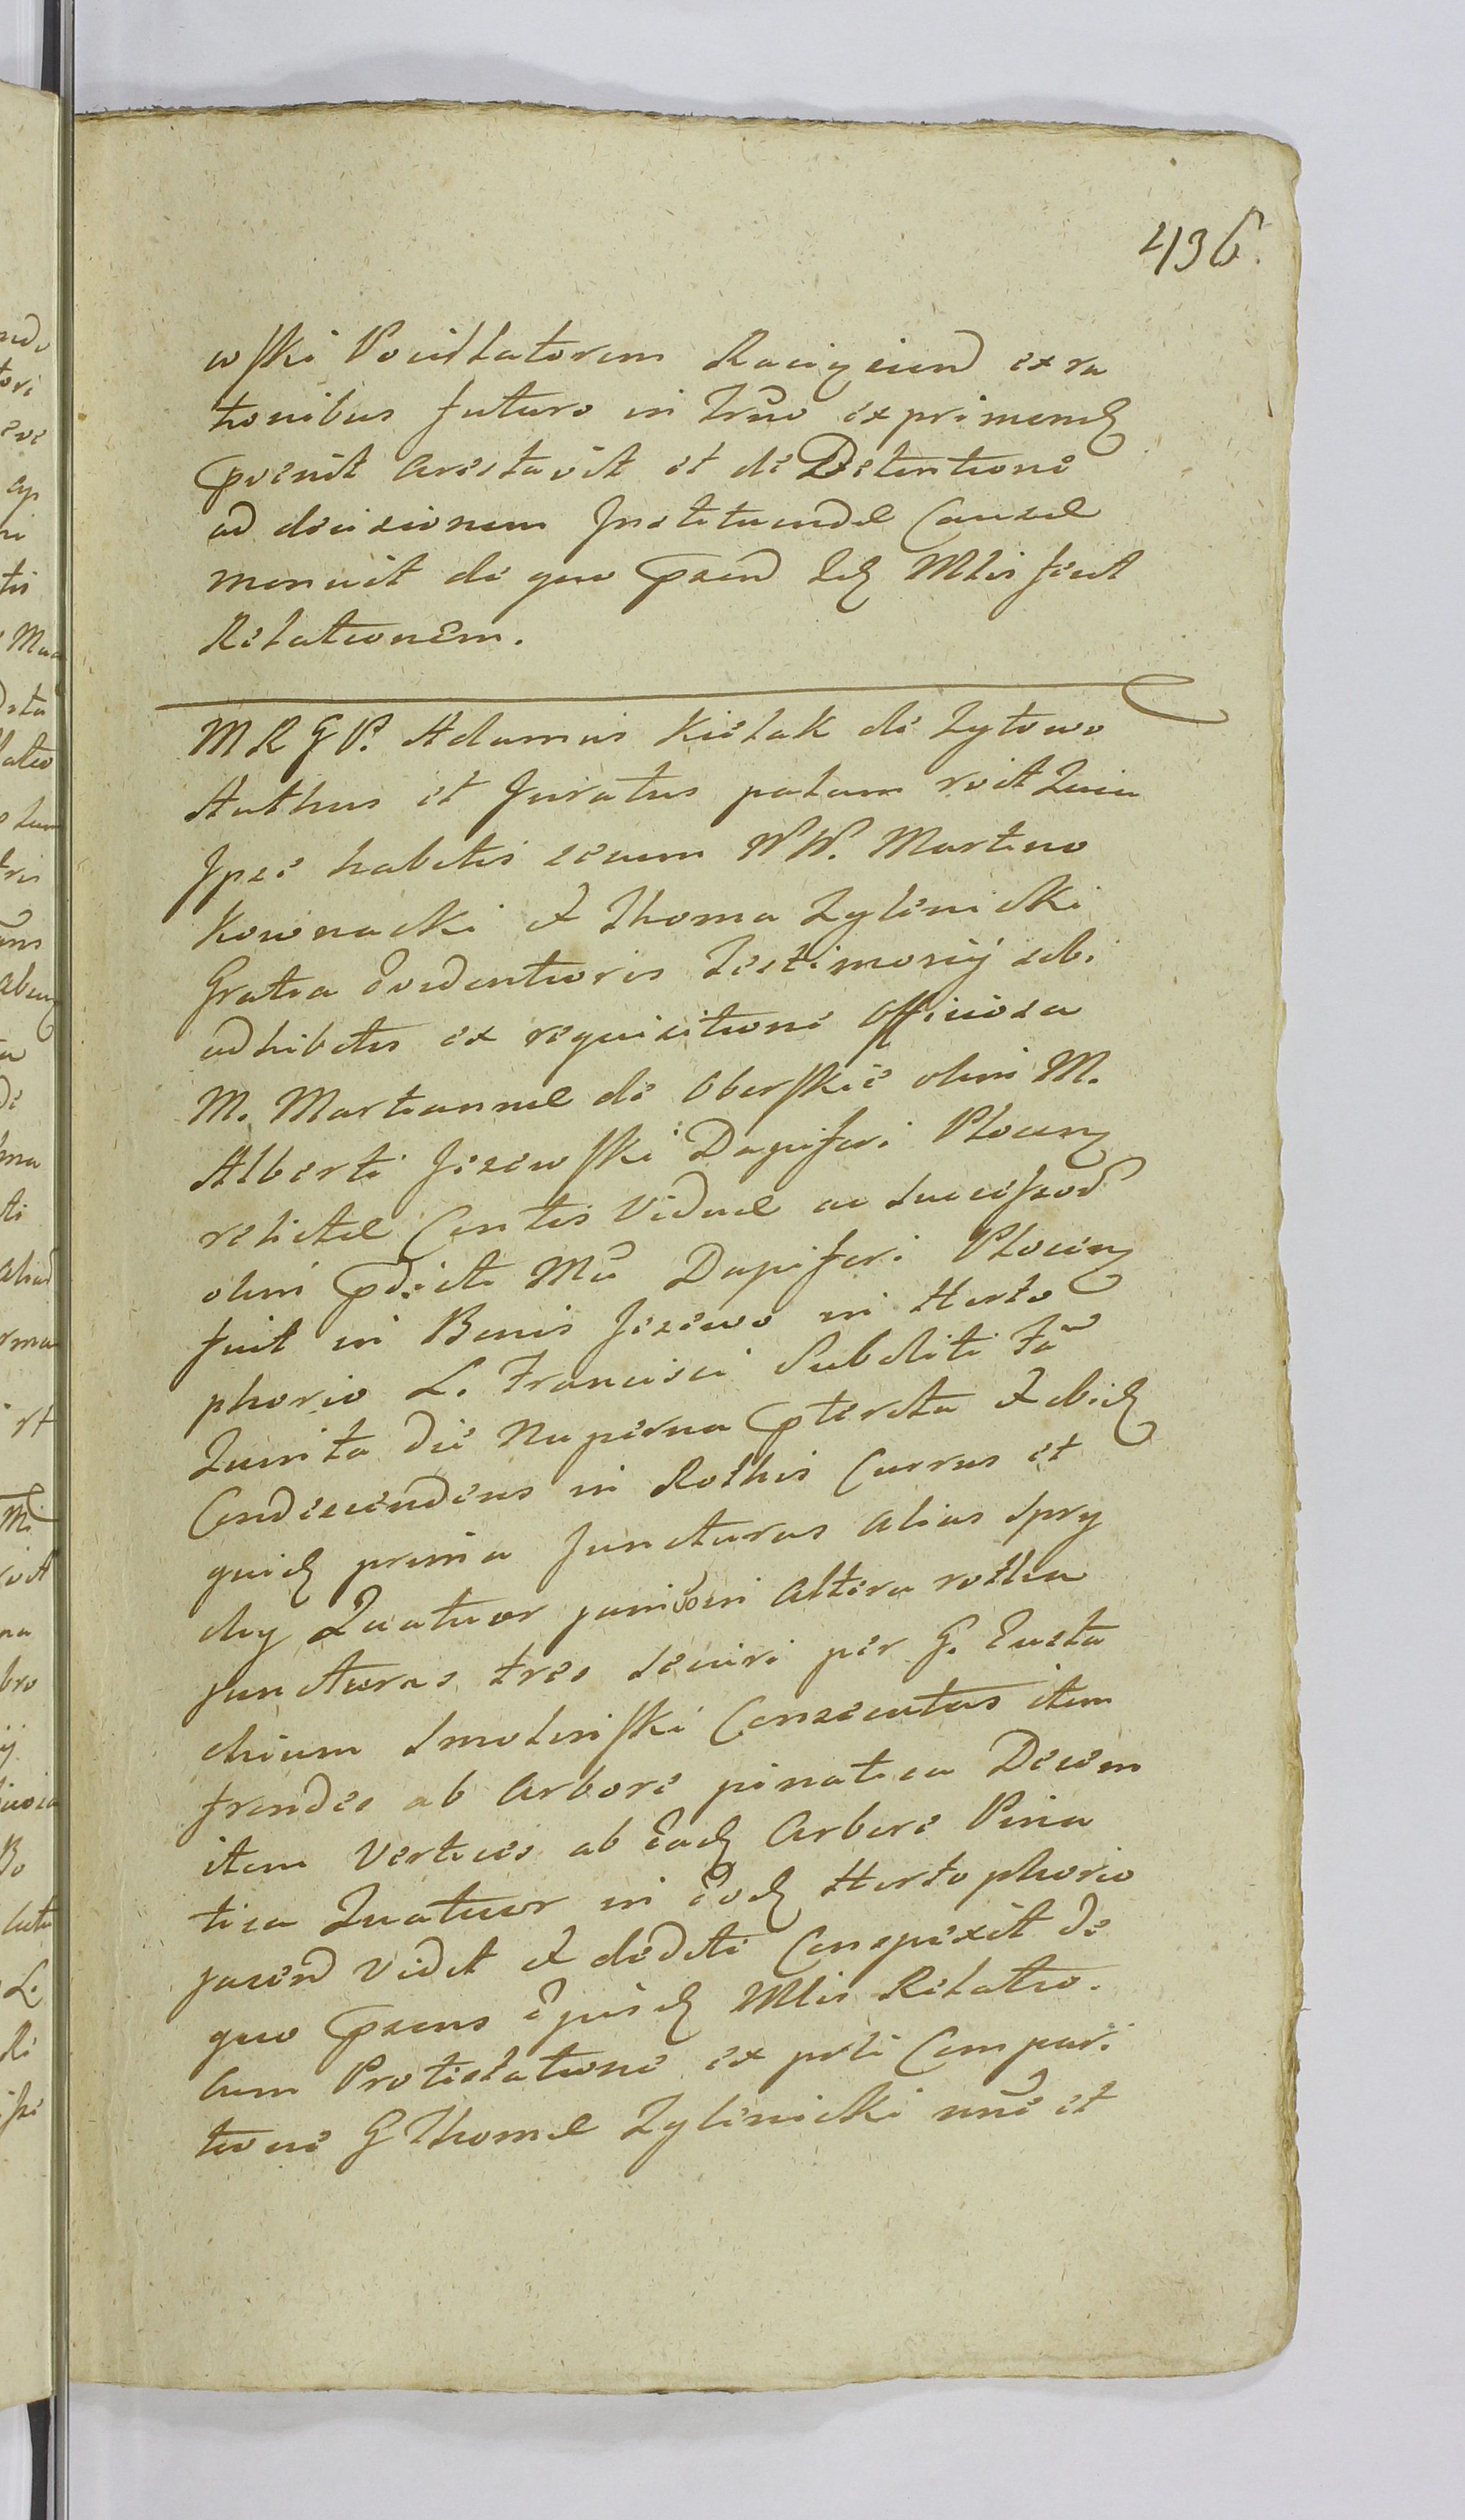 436.
wski Pocillatorem Raciązien ex ra
tionibus futuro in Trno exprimend
pvenit arestavit et de Detentione
ad decisionem Instituendæ Causæ
monuit de quo psen Id Mtlis fecit
Relationem.
M R G P. Adamus Kielak de Zytowo
Authus et Juratus palam rvit Quia
Ipse habitis secum NN. Martino
Kownacki et Thoma Zylinicki
Gratia Evidentioris Testimonij sibi
adhibitis ex requisitione Officiosa
M. Mariannæ de Oberskie olim M.
Alberti Jezewski Dapiferi Plocen
relictæ Contis Viduæ ac Successor
olim pdicti Mci Dapiferi Plocen
fuit in Bonis Jezewo in Horto
phorio L. Francisci Subditi Fa
Quinta die Nuperna pterita et ibid
Condescendens in Rothis Currus et
quid prima Juncturas alias Spry
chy Quatuor in Altera rotha
juncturas tres Securi per G. Eusta
chium Smolinski Consecutas item
frondes ab Arbore pinatica Decem
item Vertices ab Ead Arbore Pina
tica Quatuor in Eod Hortophorio
jacen Vidit et dediti Conspexit de
quo psens Ejusd Mtlis Relatio.
Cum Protestatione ex psli Compari
tione G Thomæ Zylinicki nne et